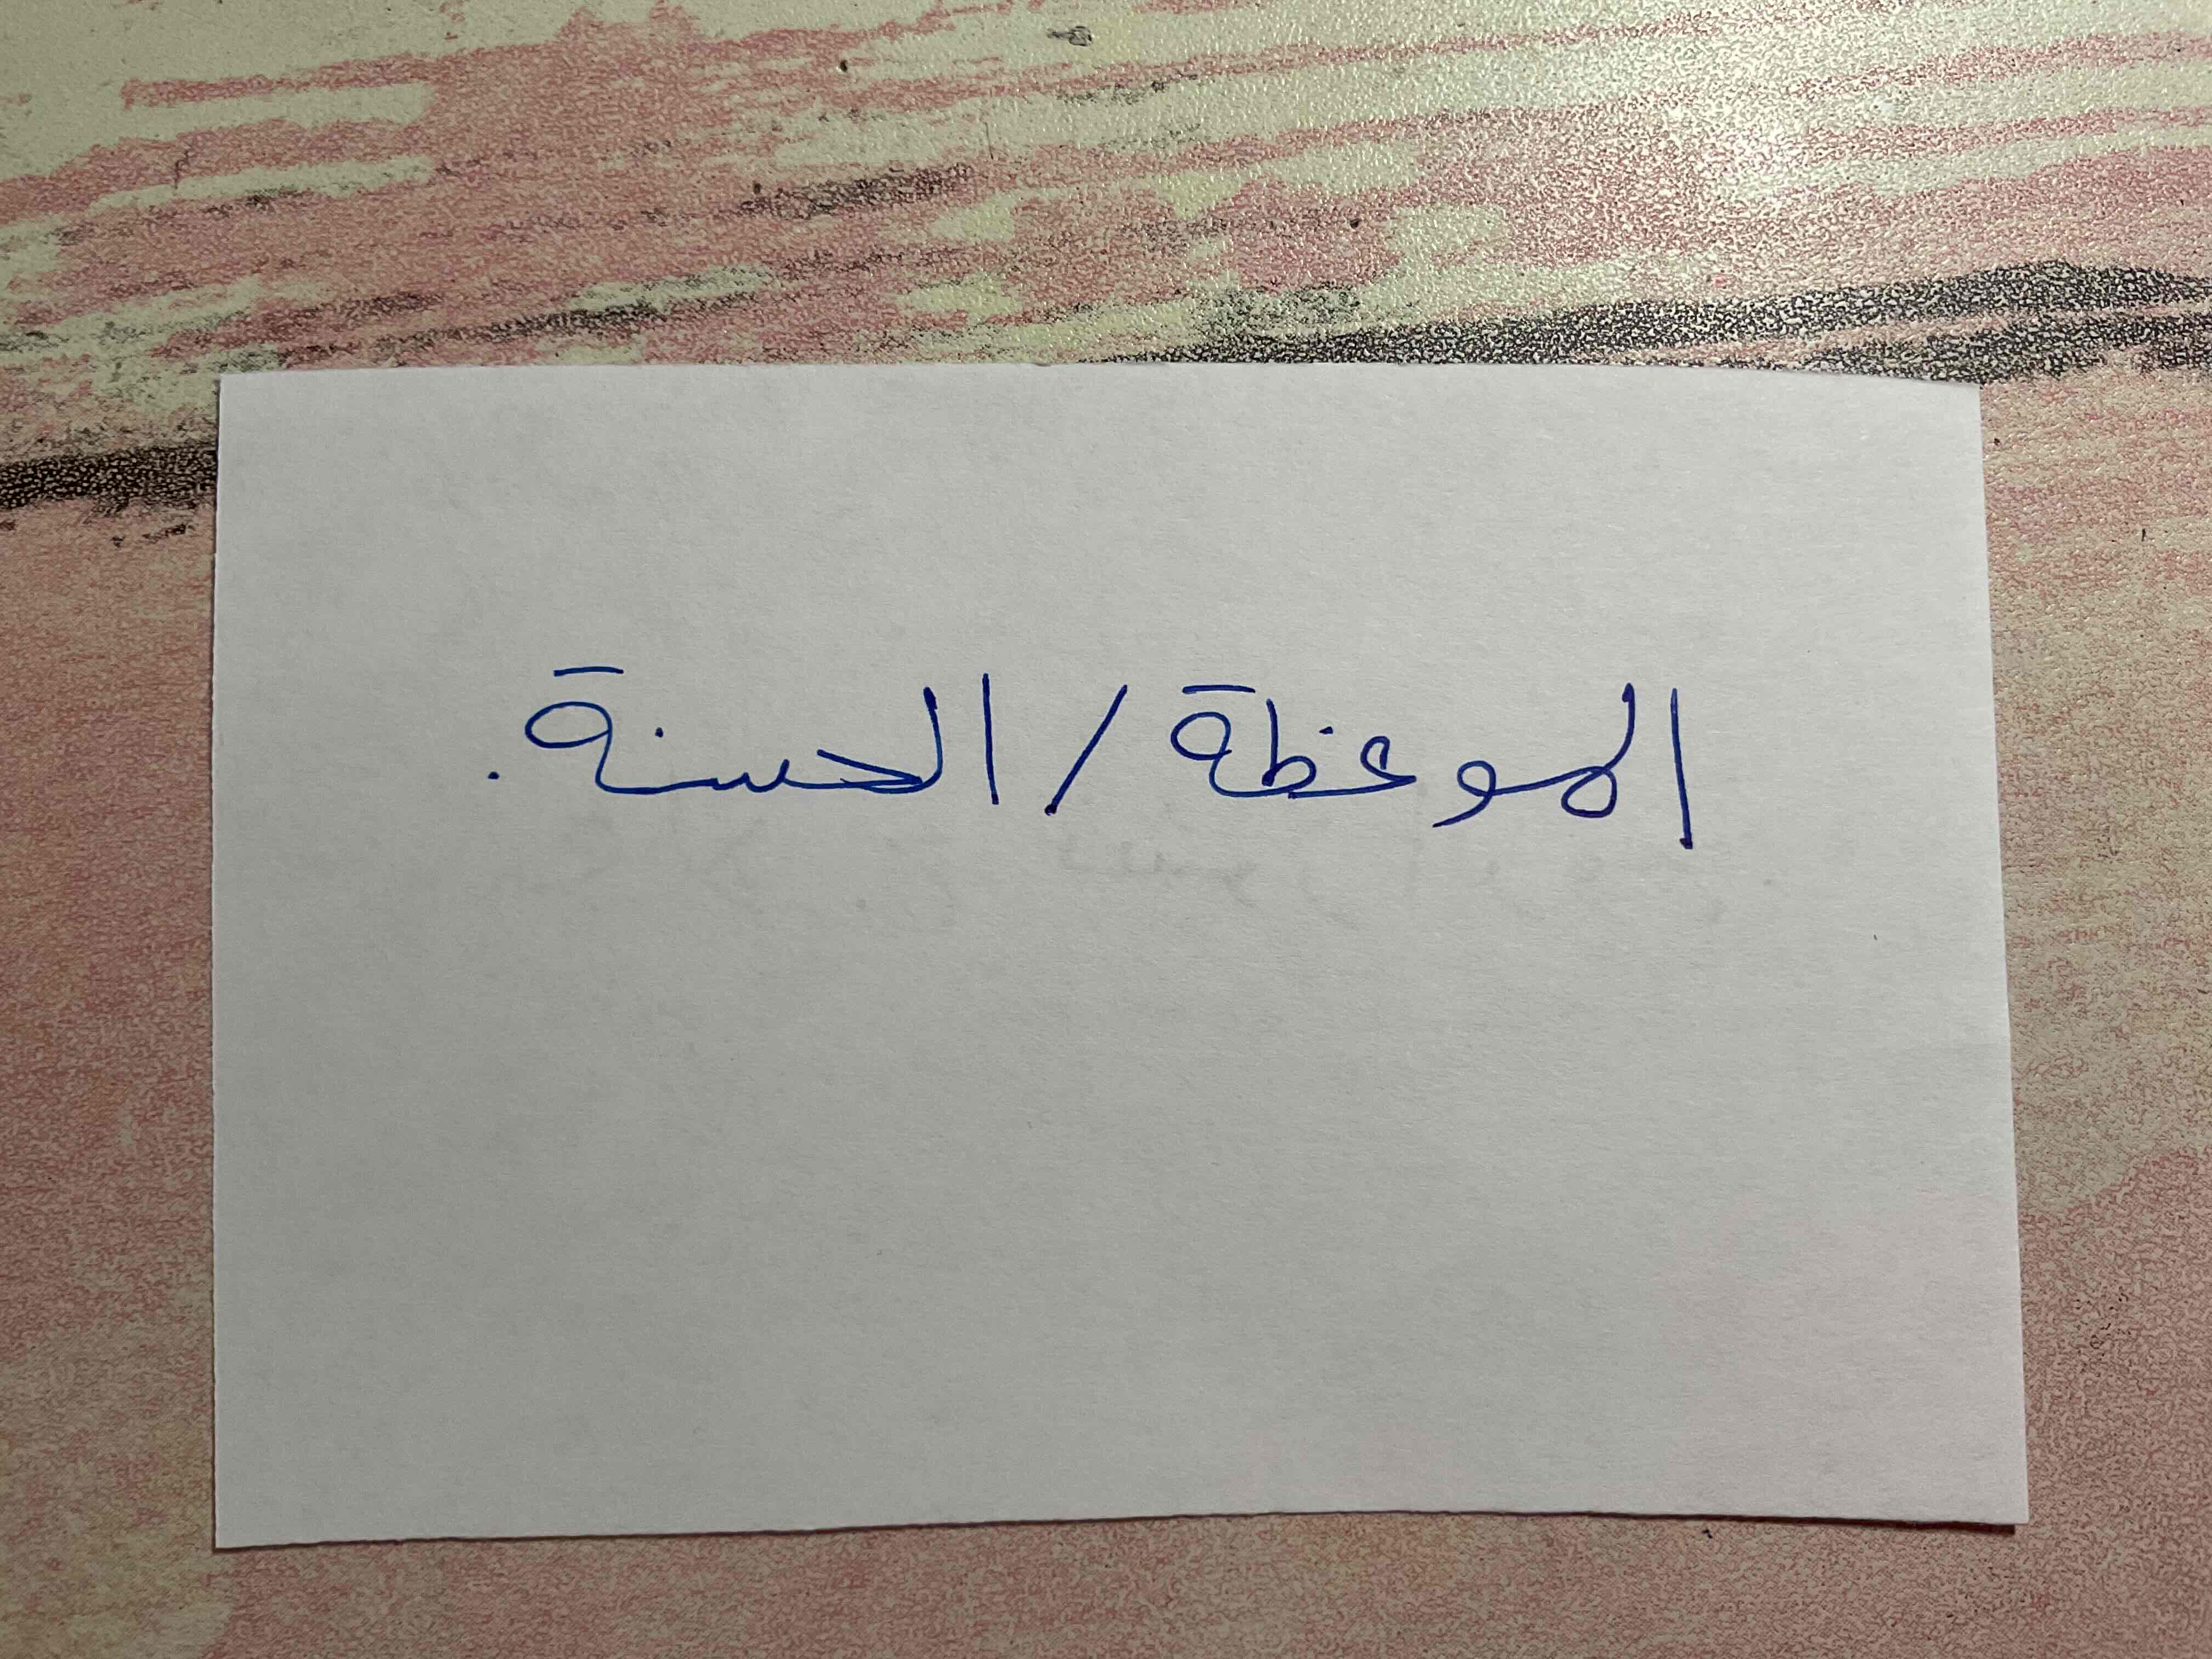 الموعظة / الحسنة.